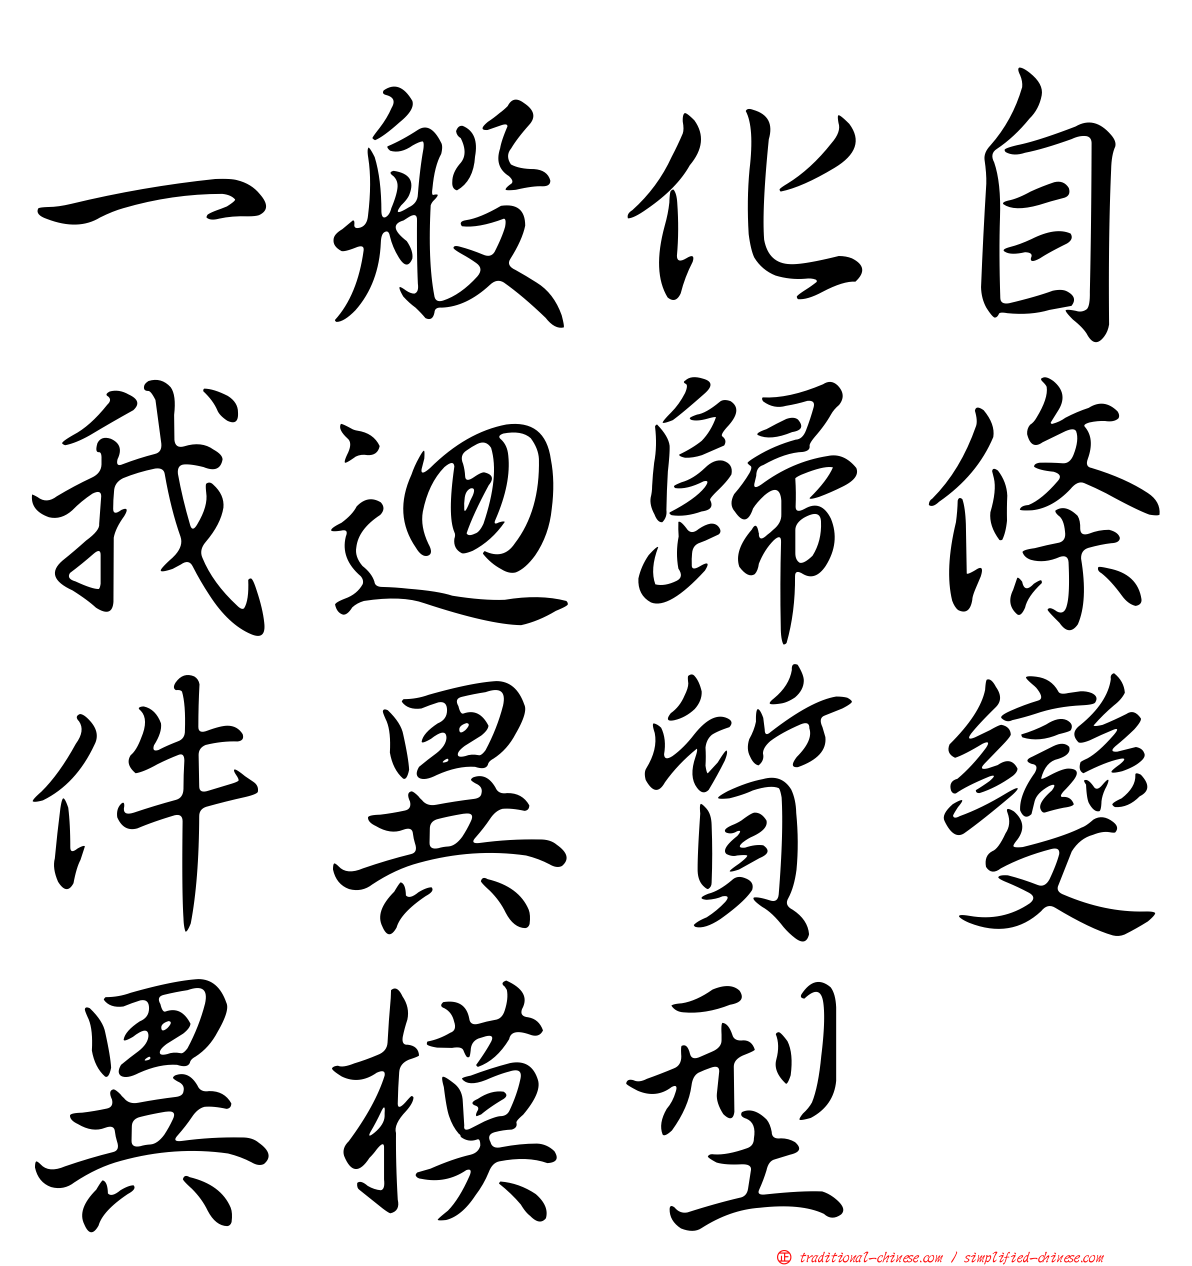 一般化自
我迴歸條
件異質變
異模型
正 traditional-chinese.com / simplified-chinese.com